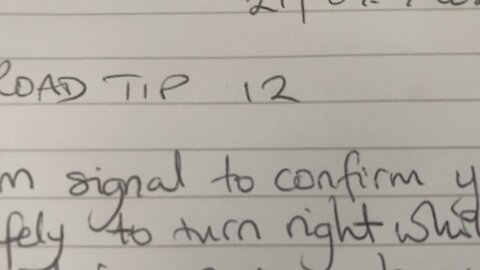 ROAD TIP 12
m signal to confirm y
fely to turn right whil